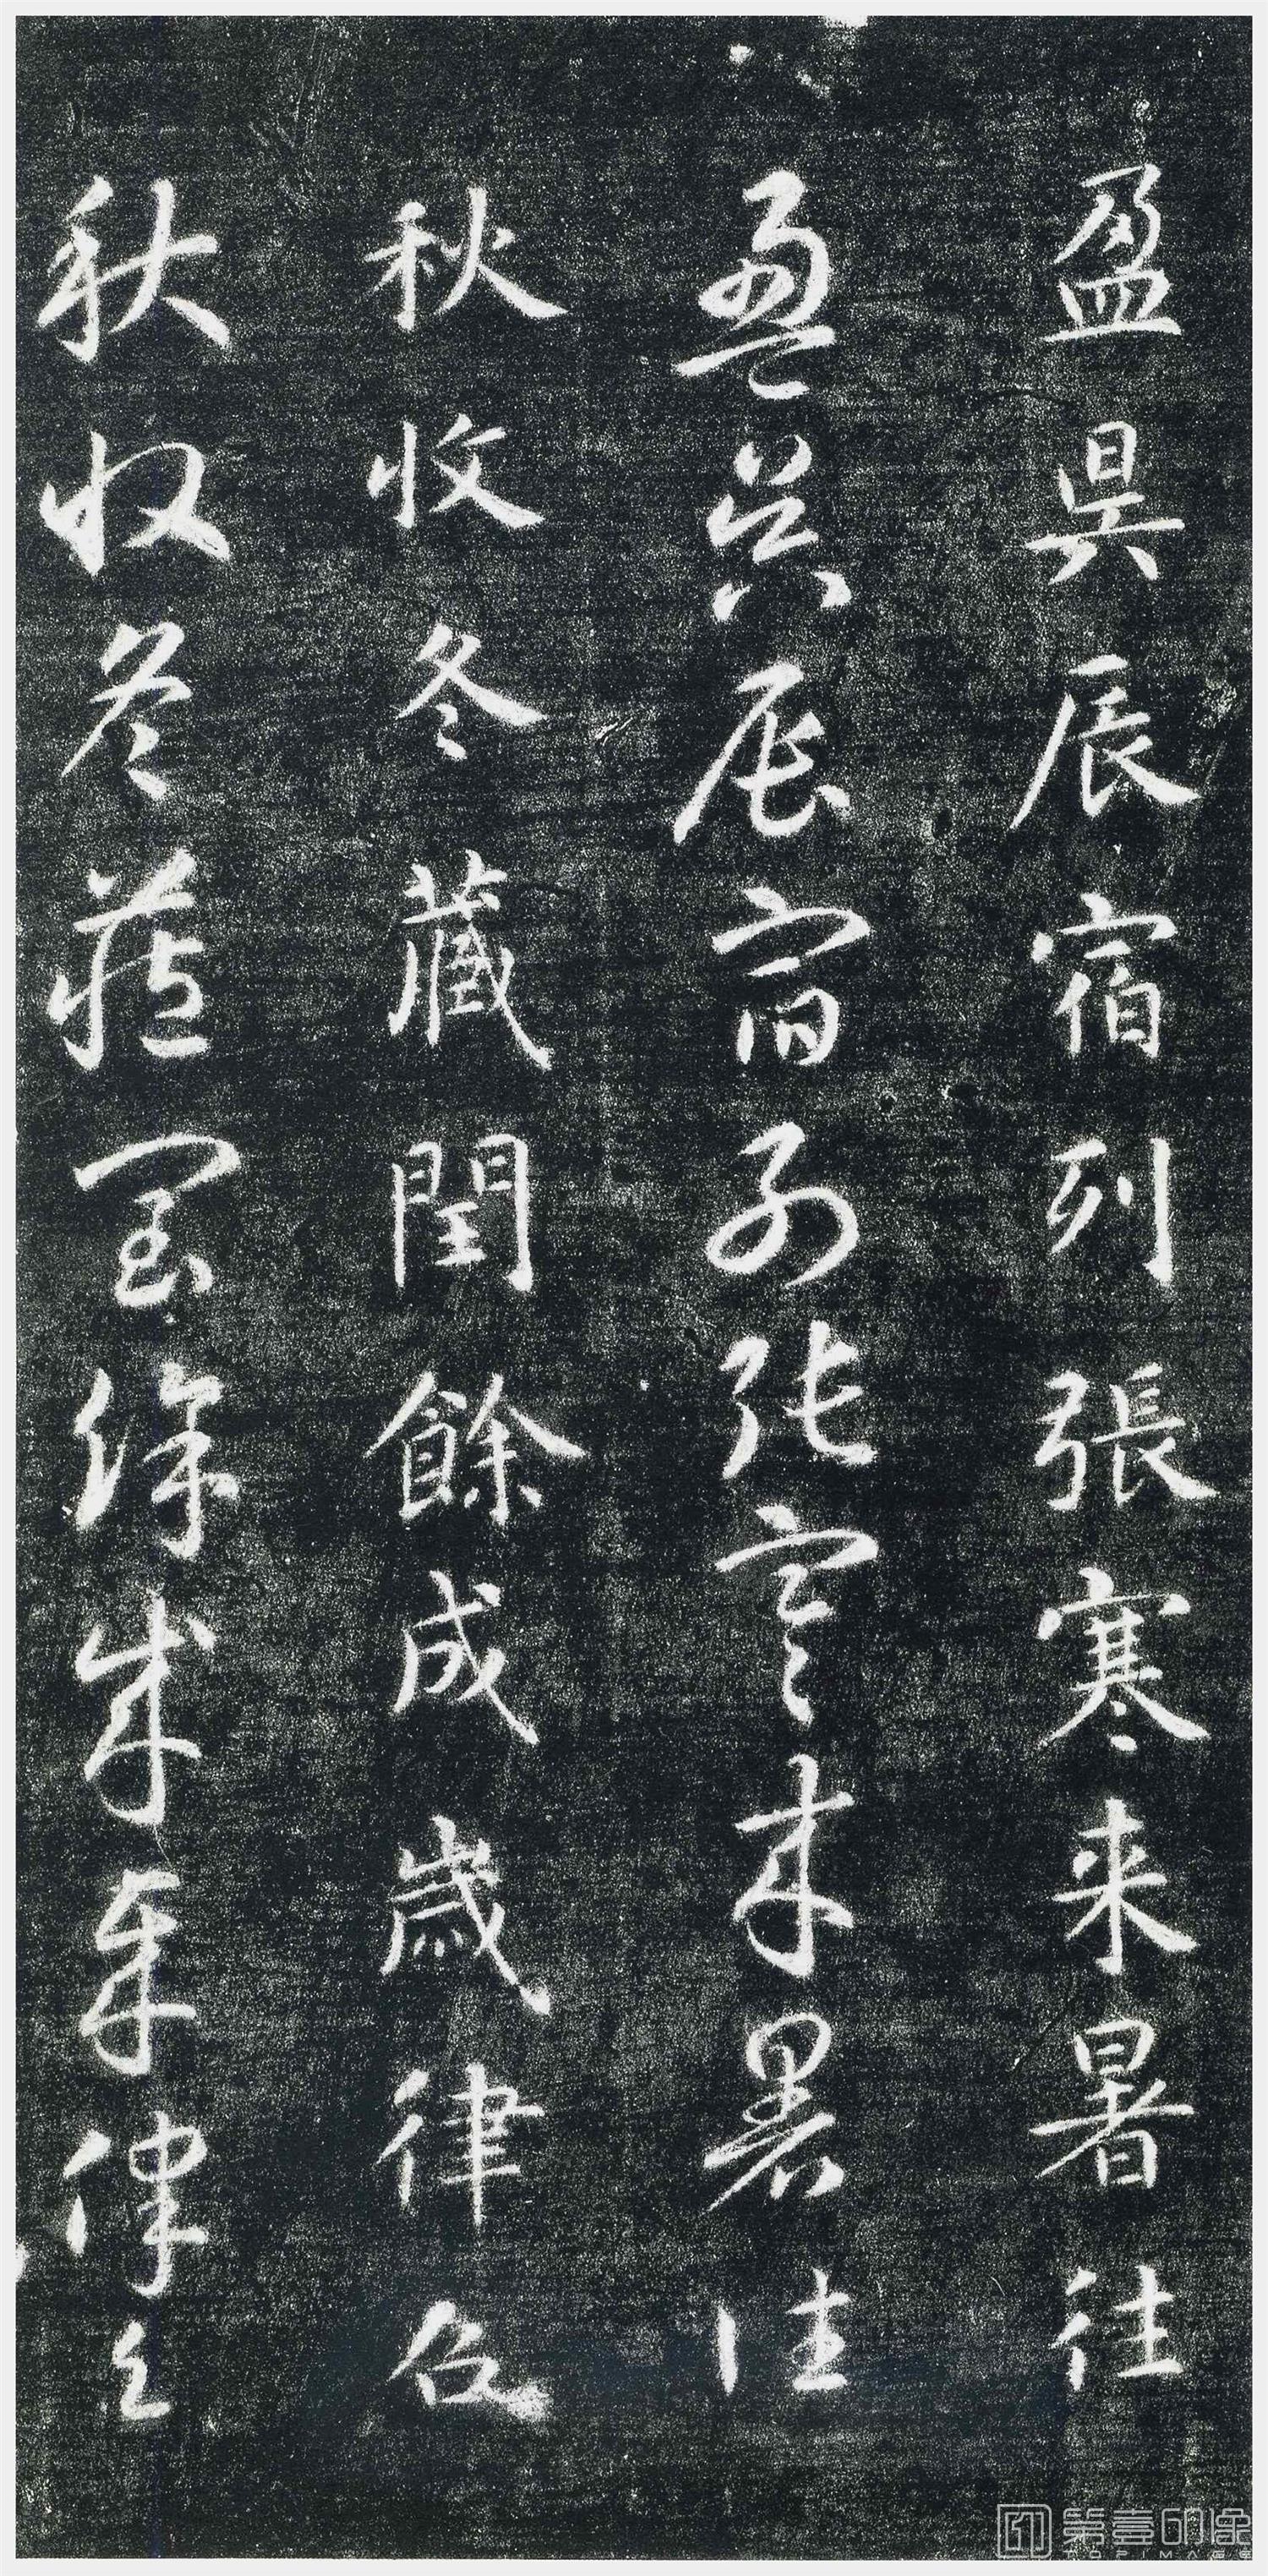 盈昃辰宿列張寒来暑往
盈昃辰宿列張寒来暑往
秋收冬藏閏餘成歲律召
秋收冬藏閏餘成歲律召
第壹印像
TOPIMAGE